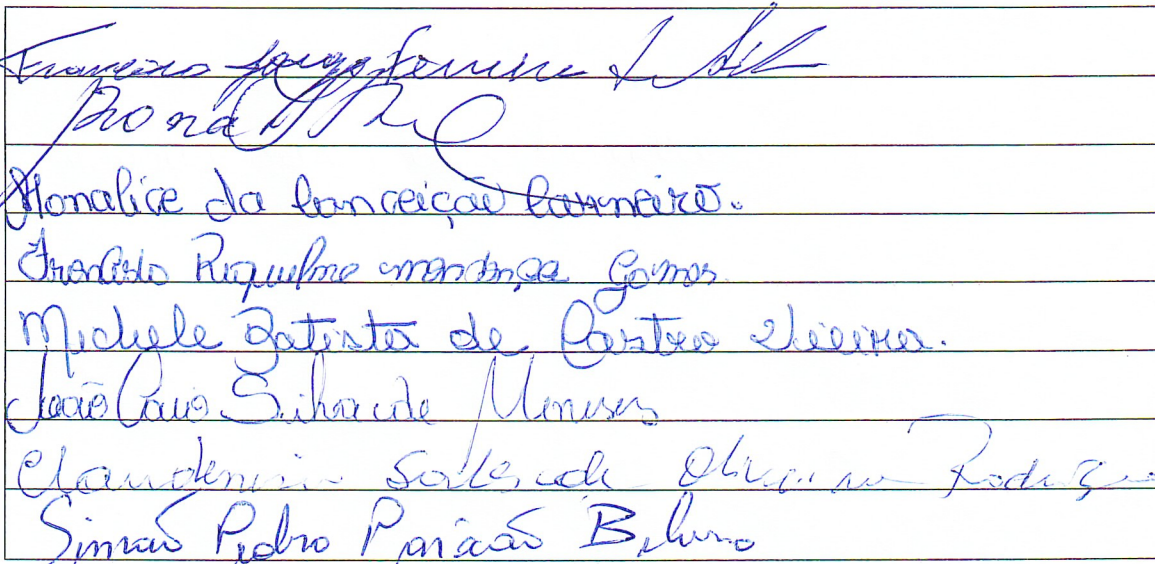 Francisco Jorge Ferreira da Silva
Monalice da Conceição Carneiro.
Francisco Riquelme mendonça Gomes
Michele Batista de Castro Vieira.
João Caio Silva de Meneses
Claudemira Sales de Oliveira Rodrigues
Simão Pedro